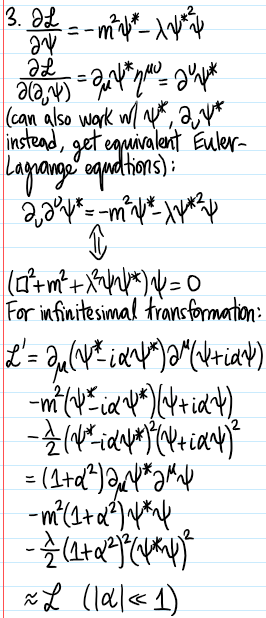 3. ∂ℒ/∂ψ = -m²ψ* - λψ*²ψ
∂ℒ/∂(∂_νψ) = ∂_μψ*η^{μν} = ∂^νψ*
(can also work w/ ψ*, ∂_νψ*
instead, get equivalent Euler-
Lagrange equations):
∂_ν∂^νψ* = -m²ψ* - λψ*²ψ
⇕
(□²+m²+λ²ψψ*)ψ = 0
For infinitesimal transformation:
ℒ' = ∂_μ(ψ*-iαψ*)∂^μ(ψ+iαψ)
-m²(ψ*-iαψ*)(ψ+iαψ)
-λ/2(ψ*-iαψ*)²(ψ+iαψ)²
= (1+α²)∂_μψ*∂^μψ
-m²(1+α²)ψ*ψ
-λ/2(1+α²)²(ψ*ψ)²
≈ ℒ (|α| ≪ 1)